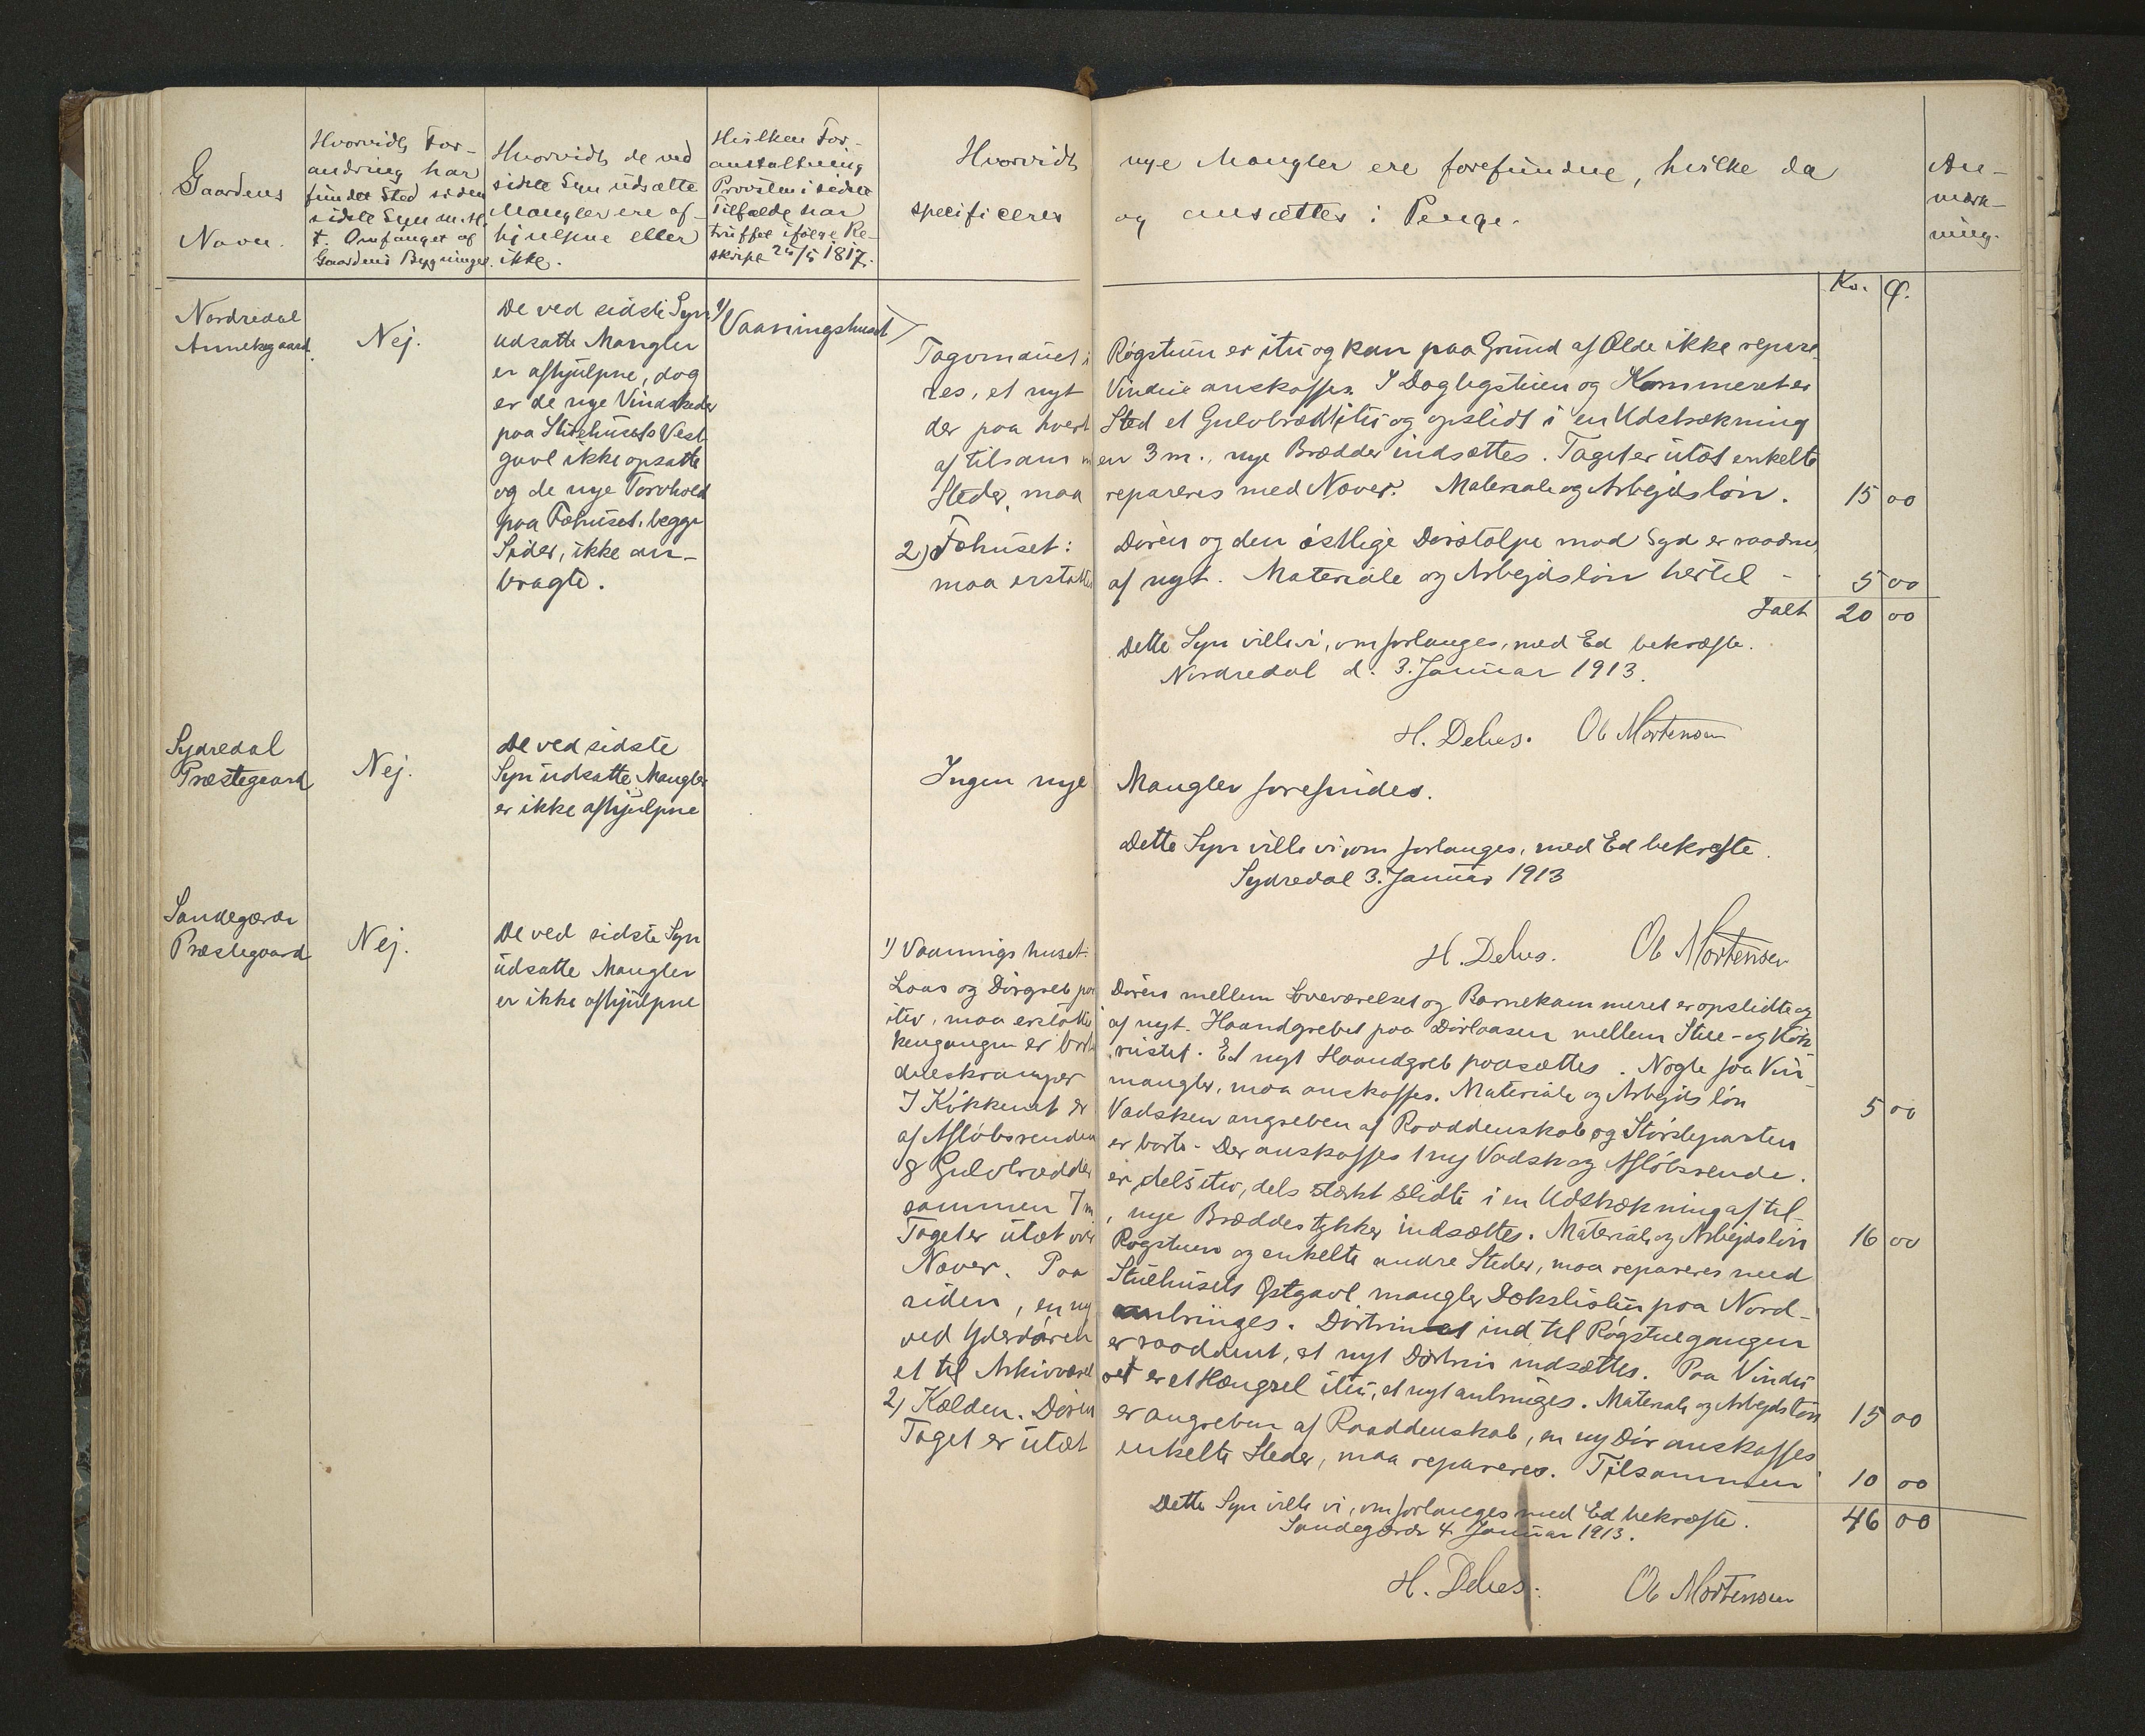 Gaardens
Navn.
Hvorvidt For-
andring har
fundet Sted siden
sidste Syn m. H.
t. Omfanget af
Gaardens Bygninger.
Hvorvidt de ved
sidste Syn udsatte
Mangler ere af-
hjulpne eller
ikke.
Hvilken For-
anstaltning
Provsten i sidste
Tilfælde har
truffet ifølge Re-
skript 25/5 1817.
Hvorvidt nye Mangler ere forefundne, hvilke da
specificeres og ansættes i Penge.
An-
mærk-
ning.
Kr. Ø.
Nordredal
Annexgaard.
Nej.
De ved sidste Syn
udsatte Mangler
er afhjulpne, dog
er de nye Vindskeder
paa Stuehusets Vest
gavl ikke opsatte
og de nye Torvhold
paa Fæhuset, begge
Sider, ikke an-
bragte.
1) Vaaningshuset
Tagvinduet i Røgstuen er itu og kan paa Grund af Ælde ikke repare-
res, et nyt Vindue anskaffes. I Dagligstuen og Kammeret er
der paa hvert Sted et Gulvbrædt itu og opslidt i en Udstrækning
af tilsam men 3 m., nye Brædder indsættes. Taget er utæt enkelte
Steder, maa repareres med Næver. Materiale og Arbejdsløn. 15 00
2) Fæhuset: Døren og den østlige Dørstolpe mod Syd er raadne
maa erstattes af nyt. Materiale og Arbejdsløn hertil - 5 00
Ialt 20 00
Dette Syn ville vi, om forlanges, med Ed bekræfte.
Nordredal d. 3. Januar 1913.
H. Debes. Ob Mortensen
Sydredal
Præstegaard
Nej.
De ved sidste
Syn udsatte Mangler
er ikke afhjulpne
Ingen nye Mangler forefindes.
Dette Syn ville vi, om forlanges, med Ed bekræfte.
Sydredal 3. Januar 1913
H. Debes. Ob Mortensen
Sandegærde
Præstegaard
Nej.
De ved sidste Syn
udsatte Mangler
er ikke afhjulpne
1) Vaaningshuset.
Laas og Dørgreb paa Døren mellem Soveværelset og Barnekammeret er opslidte og
itu, maa erstattes af nyt. Haandgrebet paa Dørlaasen mellem Stue- og Køk-
kengangen er bort rustet. Et nyt Haandgreb paasættes. Nogle faa Vin-
dueskramper mangler, maa anskaffes. Materiale og Arbejdsløn 5 00
I Køkkenet er Vadsken angreben af Raaddenskab og Størsteparten
af Afløbsrenden er borte. Der anskaffes 1 ny Vadsk og Afløbsrende.
8 Gulvbrædder er dels itu, dels stærkt slidte i en Udstrækning af til-
sammen 7 m, nye Bræddestykker indsættes. Materiale og Arbejdsløn 16 00
Taget er utæt over Røgstuen og enkelte andre Steder, maa repareres med
Næver. Paa Stuehusets Østgavl mangler Dækslisten paa Nord-
siden, en ny anbringes. Dørtrinet ind til Røgstuegangen
ved Yderdøren er raaddent, et nyt Dørtrin indsættes. Paa Vindu
et til Arkivværelset er et Hængsel itu, et nyt anbringes. Materiale og Arbejdsløn 15 00
2) Kælden. Døren er angreben af Raaddenskab, en ny Dør anskaffes
Taget er utæt enkelte Steder, maa repareres. Tilsammen 10 00
Dette Syn ville vi, om forlanges med Ed bekræfte. 46 00
Sandegærde 4. Januar 1913.
H. Debes. Ob Mortensen